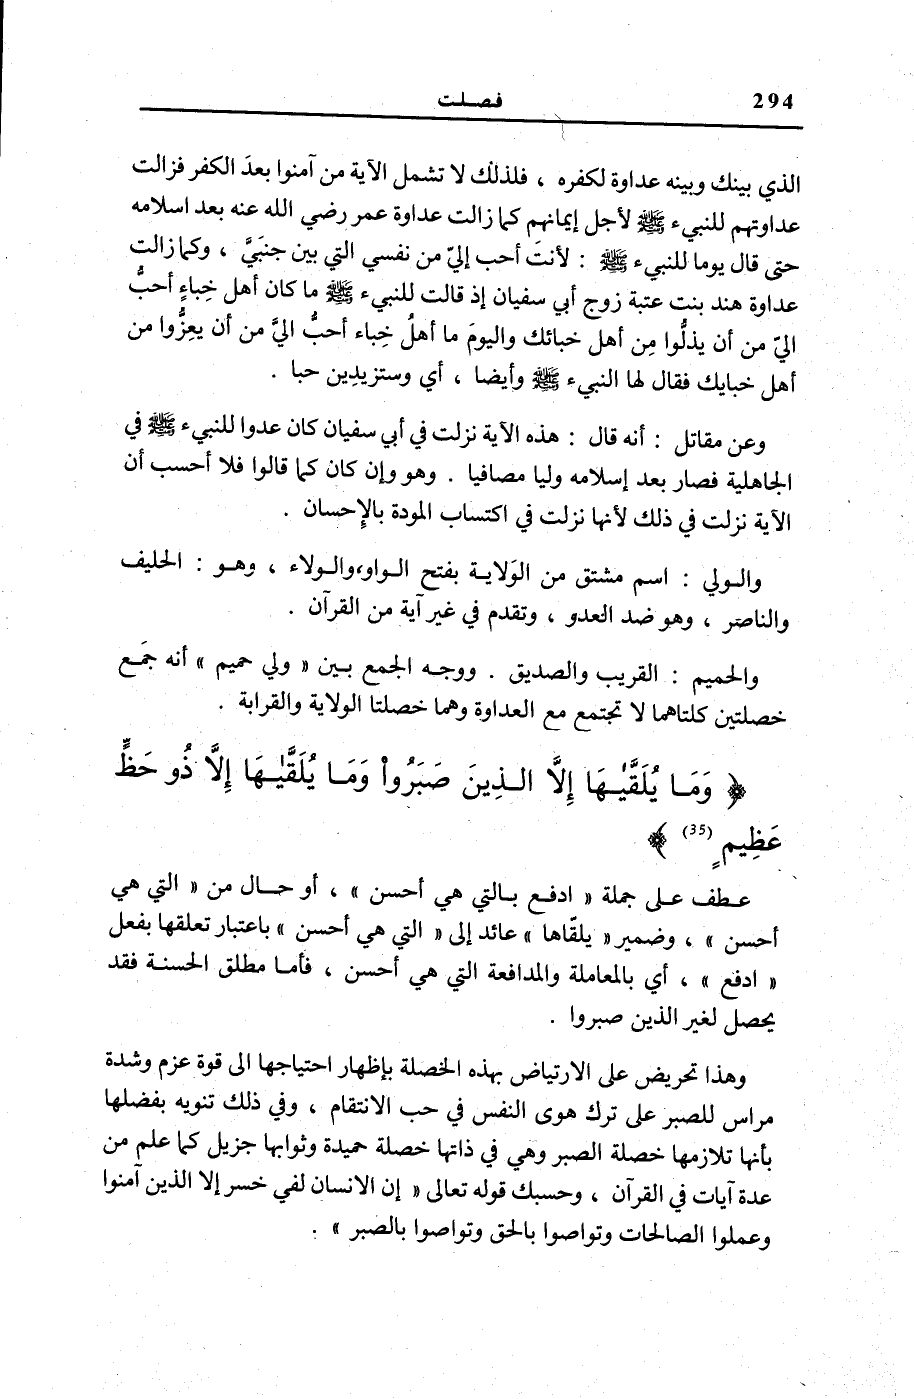 294 فصلت
الذي بينك وبينه عداوة لكفره ، فلذلك لا تشمل الآية من آمنوا بعدَ الكفر فزالت
عداوتهم للنبيء ﷺ لأجل إيمانهم كما زالت عداوة عمر رضي الله عنه بعد اسلامه
حتى قال يوما للنبيء ﷺ : لأنتَ أحب إليّ من نفسي التي بين جنبَيَّ ، وكما زالت
عداوة هند بنت عتبة زوج أبي سفيان إذ قالت للنبيء ﷺ ما كان أهل خِباءٍ أحبُّ
اليّ من أن يذلُّوا مِن أهل خبائك واليومَ ما أهلُ خِباء أحبُّ اليَّ من أن يعِزُّوا من
أهل خبايك فقال لها النبيء ﷺ وأيضا ، أي وستزيدين حبا .
وعن مقاتل : أنه قال : هذه الآية نزلت في أبي سفيان كان عدوا للنبيء ﷺ في
الجاهلية فصار بعد إسلامه وليا مصافيا . وهو وإن كان كما قالوا فلا أحسب أن
الآية نزلت في ذلك لأنها نزلت في اكتساب المودة بالإحسان .
والولي : اسم مشتق من الوَلاية بفتح الواو،والولاء ، وهو : الحليف
والناصر ، وهو ضد العدو ، وتقدم في غير آية من القرآن .
والحميم : القريب والصديق . ووجه الجمع بين « ولي حميم » أنه جمَع
خصلتين كلتاهما لا تجتمع مع العداوة وهما خصلتا الولاية والقرابة .
﴿ وَمَا يُلَقَّيٰهَا إِلَّا الذِينَ صَبَرُواْ وَمَا يُلَقَّيٰهَا إِلَّا ذُو حَظٍّ
عَظِيمٍ (35) ﴾
عطف على جملة « ادفع بالتي هي أحسن » ، أو حال من « التي هي
أحسن » ، وضمير « يلقّاها » عائد إلى « التي هي أحسن » باعتبار تعلقها بفعل
« ادفع » ، أي بالمعاملة والمدافعة التي هي أحسن ، فأما مطلق الحسنة فقد
يحصل لغير الذين صبروا .
وهذا تحريض على الارتياض بهذه الخصلة بإظهار احتياجها الى قوة عزم وشدة
مراس للصبر على ترك هوى النفس في حب الانتقام ، وفي ذلك تنويه بفضلها
بأنها تلازمها خصلة الصبر وهي في ذاتها خصلة حميدة وثوابها جزيل كما علم من
عدة آيات في القرآن ، وحسبك قوله تعالى « إن الانسان لفي خسر إلا الذين آمنوا
وعملوا الصالحات وتواصوا بالحق وتواصوا بالصبر » .